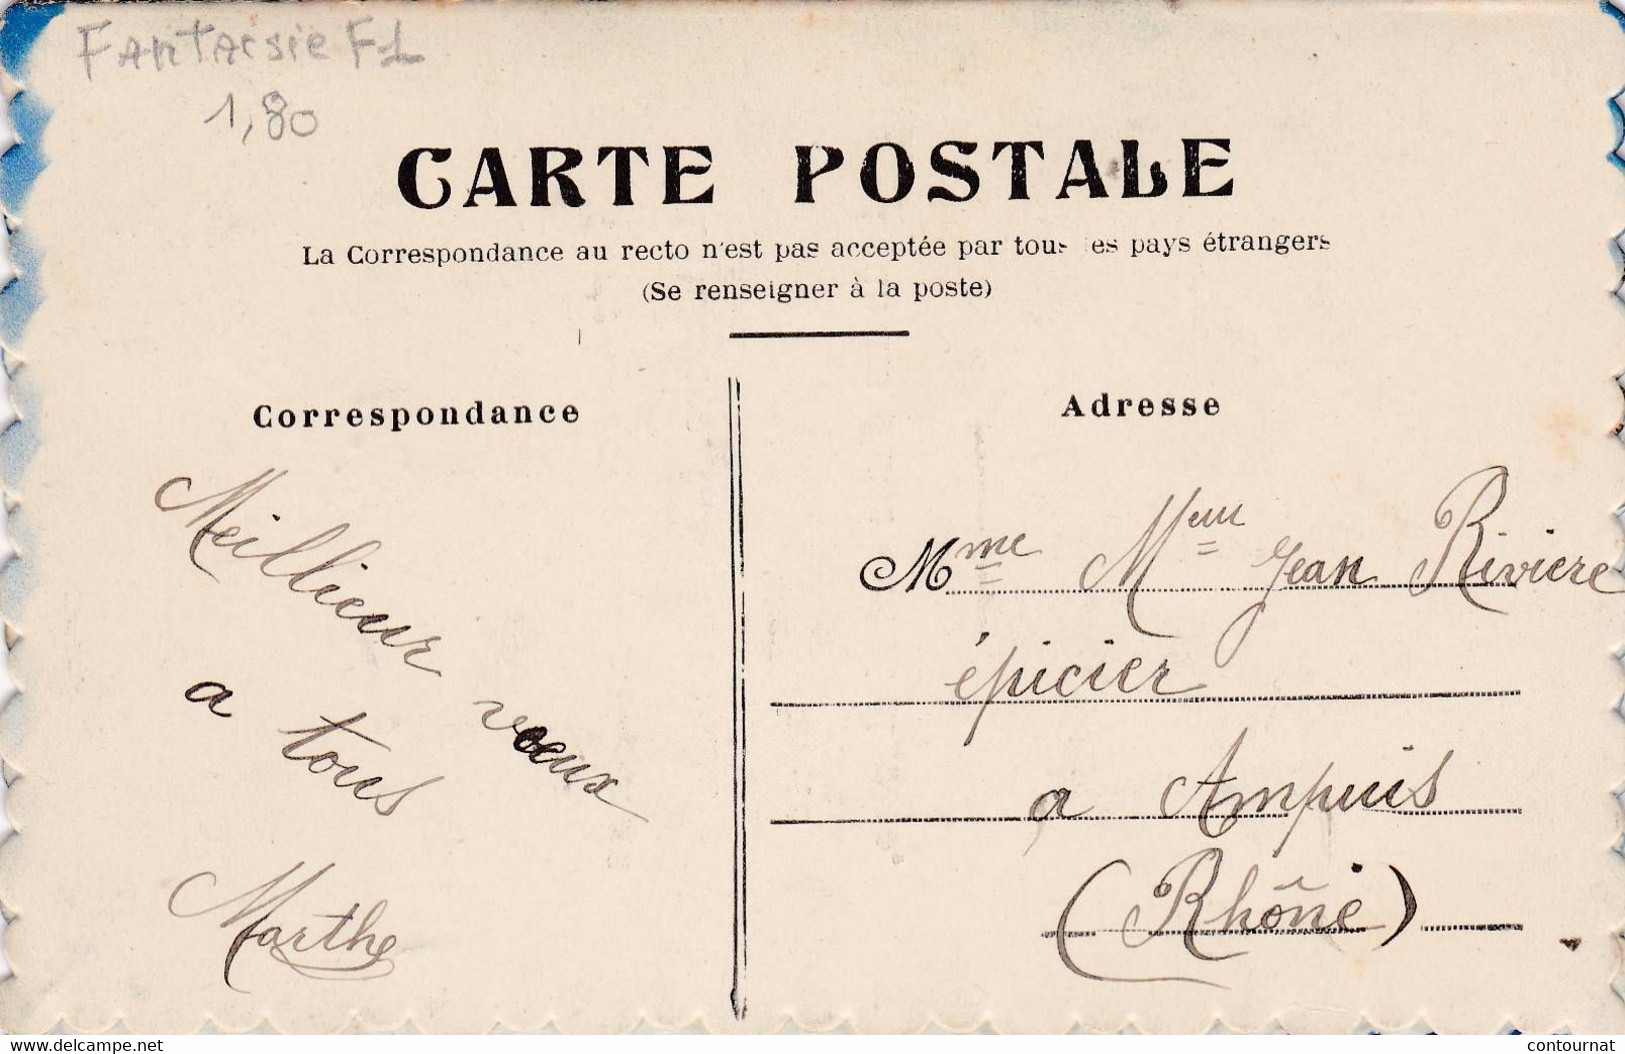 Fantaisie FL
1,80
CARTE POSTALE
La Correspondance au recto n'est pas acceptée par tous les pays étrangers
(Se renseigner à la poste)
Correspondance
Adresse
Meillieur voeux
a tous
Marthe
Mme Jean Riviere
épicier
a Ampuis
(Rhône)
delcampe.net
contournat